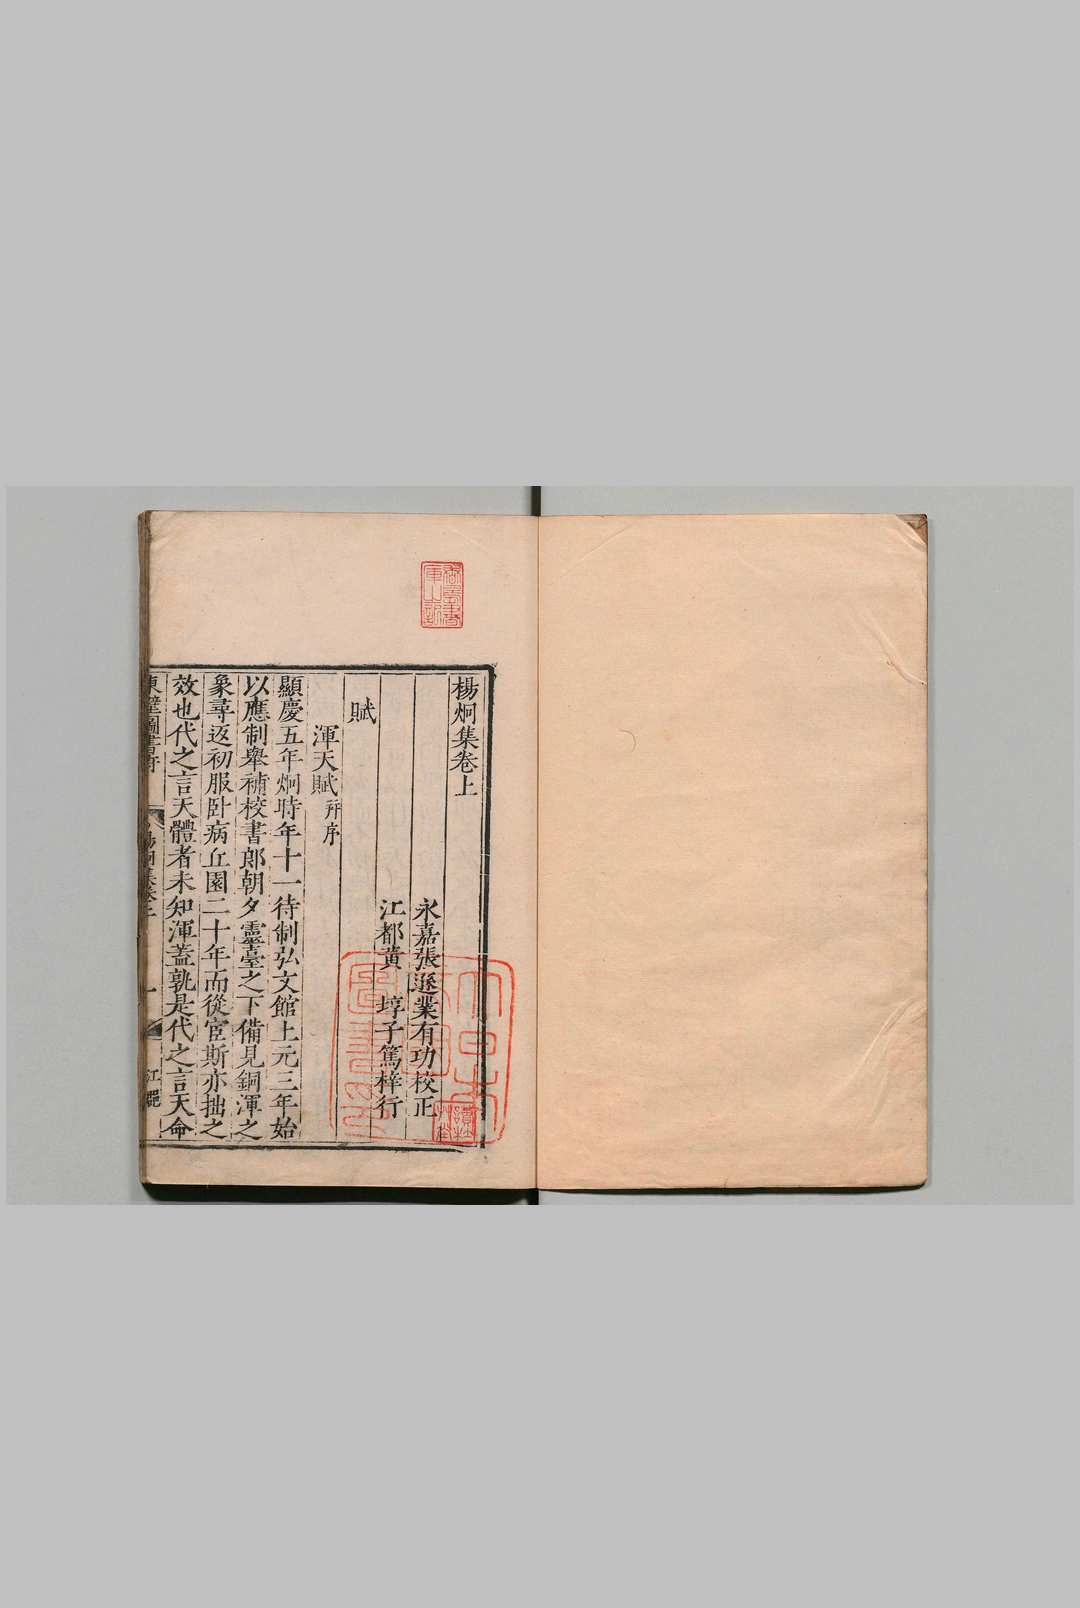 楊炯集卷上
永嘉張遜業有功校正
江都黃埻子篤梓行
賦
渾天賦并序
顯慶五年炯時年十一待制弘文館上元三年始
以應制舉補校書郎朝夕靈臺之下備見銅渾之
象尋返初服臥病丘園二十年而從宦斯亦拙之
效也代之言天體者未知渾蓋孰是代之言天命
東壁圖書府
楊炯集卷上
一
江郡